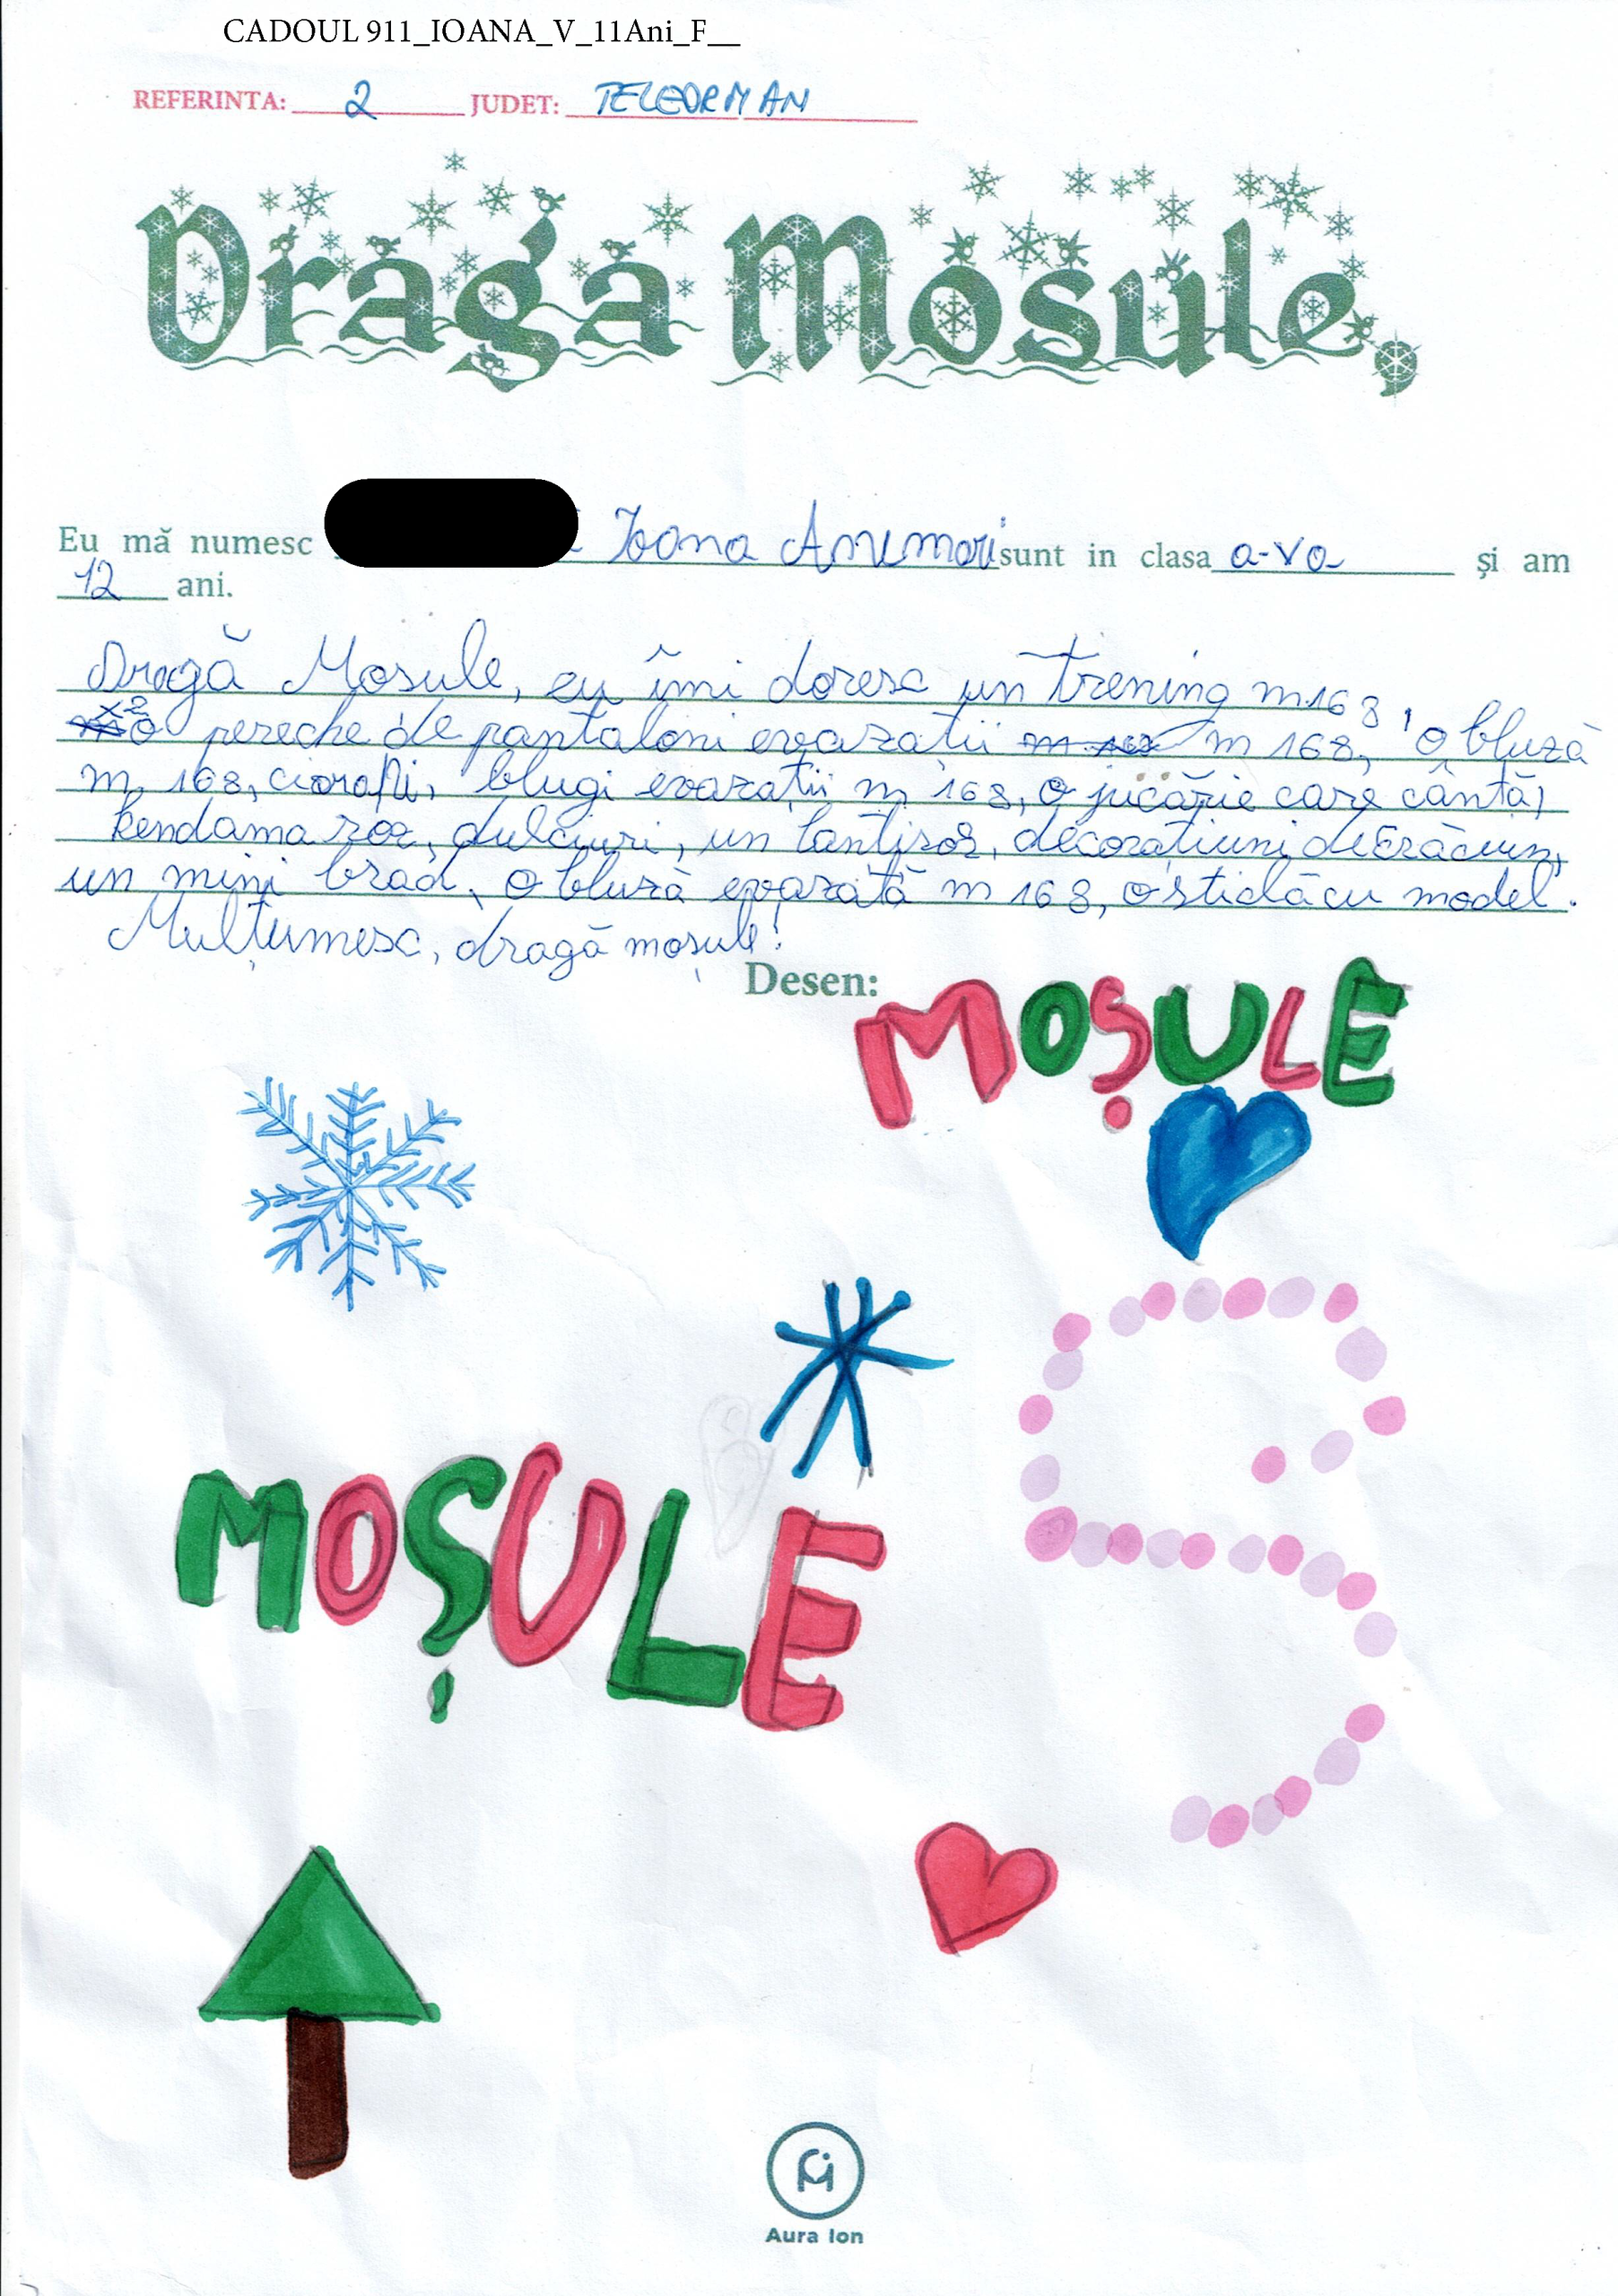 CADOUL 911_IOANA_V_11Ani_F__
REFERINTA: 2 JUDET: TELEORMAN
Draga Mosule,
Eu mă numesc Ioana sunt in clasa a-Va și am
12 ani.
Dragă Mosule, eu îmi doresc un trening m.168, o bluză
x2 o pereche de pantaloni evazatii m 168, o bluză
m 168, ciorapi, blugi evazații m 168, o jucărie care cântă,
kendama roz, dulciuri, un lantisor, decorațiuni de Crăciun,
un mini brad, o bluză evazată m 168, o sticlă cu model.
Mulțumesc, dragă moșule!
Desen:
MOȘULE
MOȘULE
Aura Ion